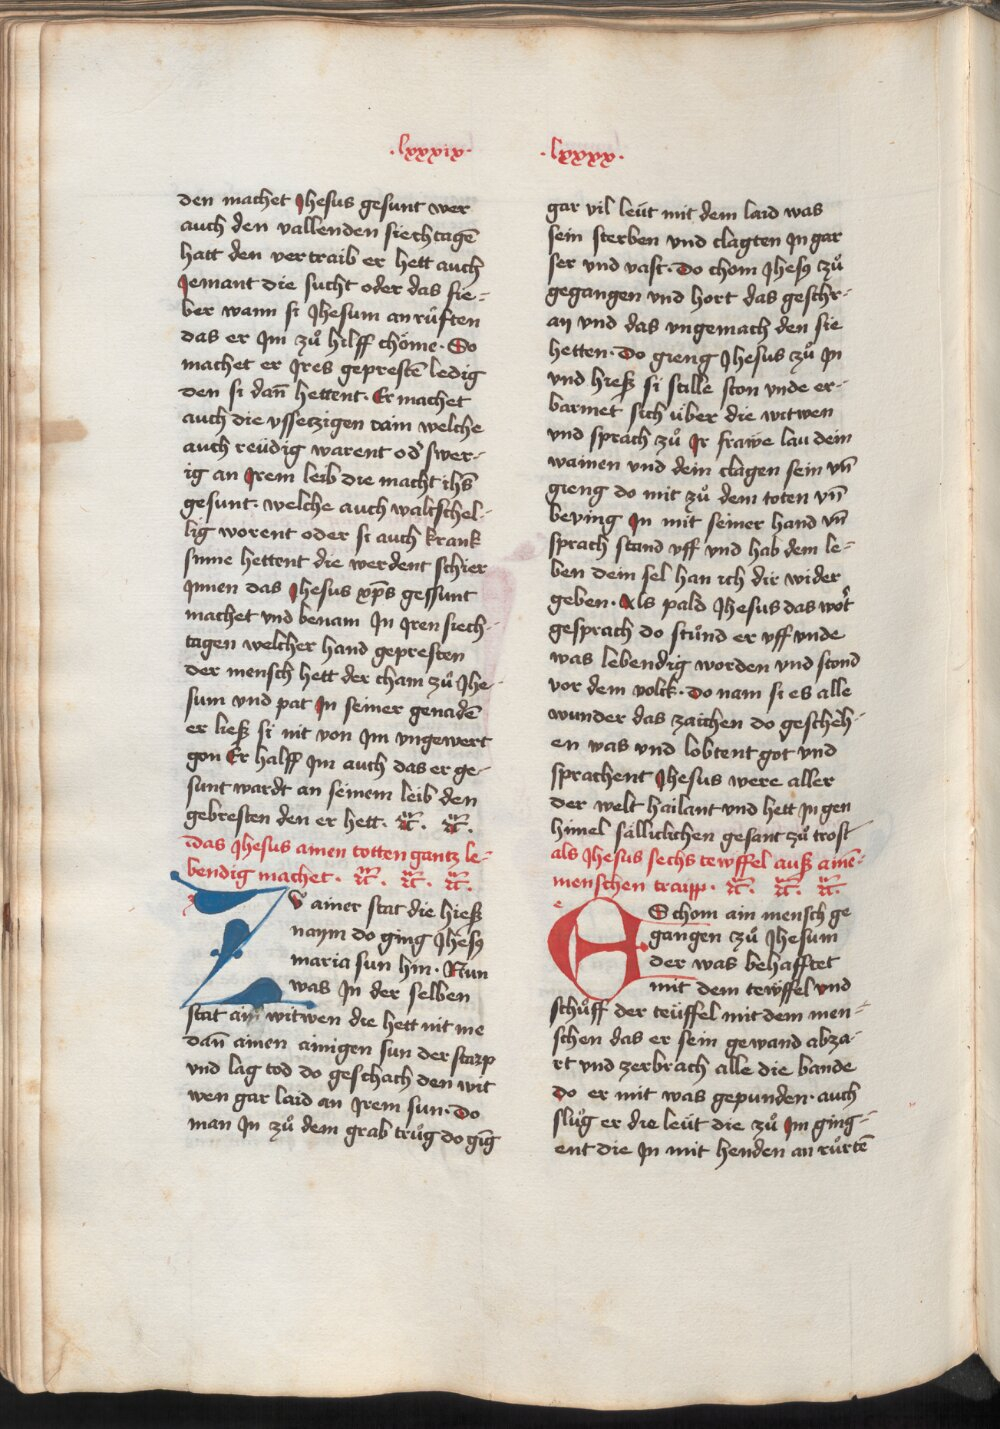 .lxxxix.
den machet Jhesus gesunt wer
auch den vallenden siechtagē
hatt den vertraib er hett auch
Jemant die sucht oder das fie-
ber wann si Jhesum an růfften
das er Jm zů hilff chöme. So
machet er Jres geprestē ledig
den si dañ hettent. Er machet
auch die vssetzigen rain welche
auch reüdig warent od' swer-
ig an Jrem leib die macht ihs̄
gesunt. welche auch waltschel-
lig worent oder si auch krank
sinne hettent die werdent schier
Jnnen das Jhesus xp̄s gessunt
machet vnd benam Jn Jren siech-
tagen welcher hand gepresten
der mensch hett der cham zů Jhe
sum vnd pat Jn seiner genadē
er liesz si nit von Jm vngewert
gon Er halff Jm auch das er ge-
sunt wardt an seinem leib den
gebresten den er hett. rc̄. rc̄.
das Jhesus ainen totten gantz le-
bendig machet. rc̄. rc̄. rc̄.
Zv ainer stat die hiesz
naym do ging Jhesꝰ
maria sun hin. Nun
was Jn der selben
stat ain witwen die hett nit me
dañ ainen ainigen sun der starp
vnd lag tod do geschach den wit
wen gar laid an Jrem sun. Do
man Jn zů dem grab trůg do gīg
.lxxxx.
gar vil leüt mit dem laid was
sein sterben vnd clagten Jn gar
ser vnd vast. Do chom Jhesꝰ zů
gegangen vnd hort das geschr-
ay vnd das vngemach den sie
hetten. Do gieng Jhesus zů Jn
vnd hiesz si stille ston vnde er-
barmet sich über die witwen
vnd sprach zů Jr frawe lau dein
wainen vnd dein clagen sein vñ
gieng do mit zů dem toten vñ
beving Jn mit seiner hand vñ
sprach stand vff vnd hab dem le-
ben dein sel han ich dir wider
geben. Als pald Jhesus das wort
gesprach do stůnd er vff vnde
was lebendig worden vnd stond
vor dem volck. Do nam si es alle
wunder das zaichen do gescheh-
en was vnd lobtent got vnd
sprachent Jhesus were aller
der welt hailant vnd hett Jn gen
himel sälliclichen gesant zů trost
als Jhesus sechs tewffel ausz ainē
menschen traipp. rc̄. rc̄. rc̄.
ES chom ain mensch ge
gangen zů Jhesum
der was behafftet
mit dem tewffel vnd
schůff der teüffel mit dem men-
schen das er sein gewand abza-
rt vnd zerbrach alle die bande
do er mit was gepunden. auch
slůg er die leüt die zů Jm ging-
ent die Jn mit henden an růrtē